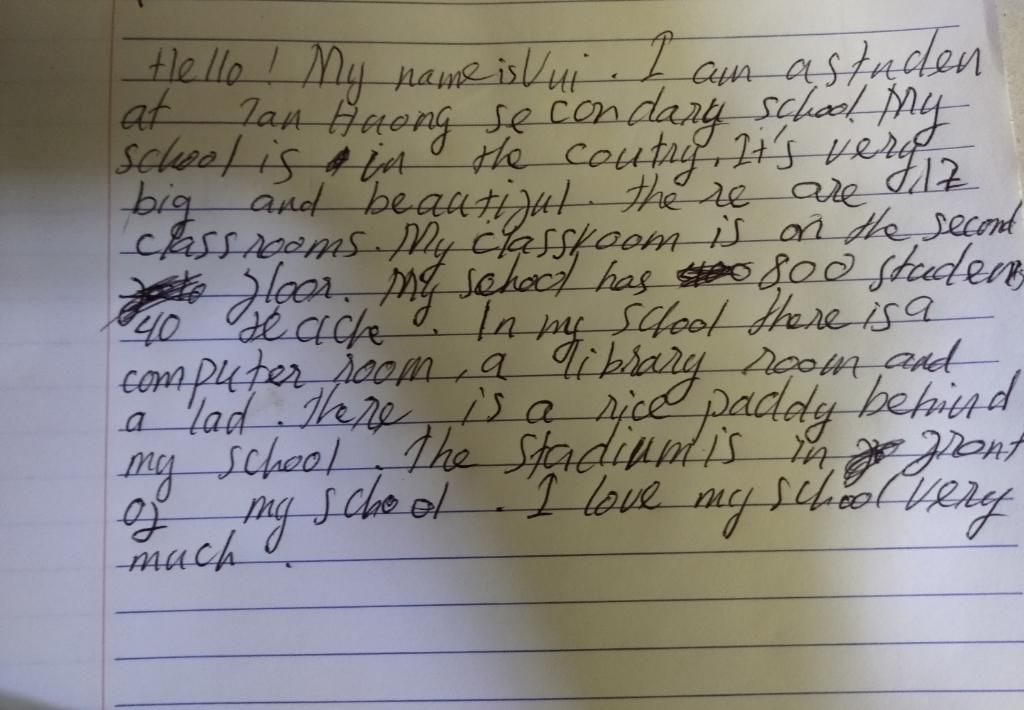 Hello! My name is Vui. I am a studen
at Tan Huong secondary school My
school is in the coutry. It's very
big and beautiful. there are 17
classrooms. My classroom is on the second
floor. My school has 800 students
40 teache. In my school there is a
computer room, a library room and
a lad. there is a rice paddy behind
my school. the stadium is in front
of my school. I love my school very
much.